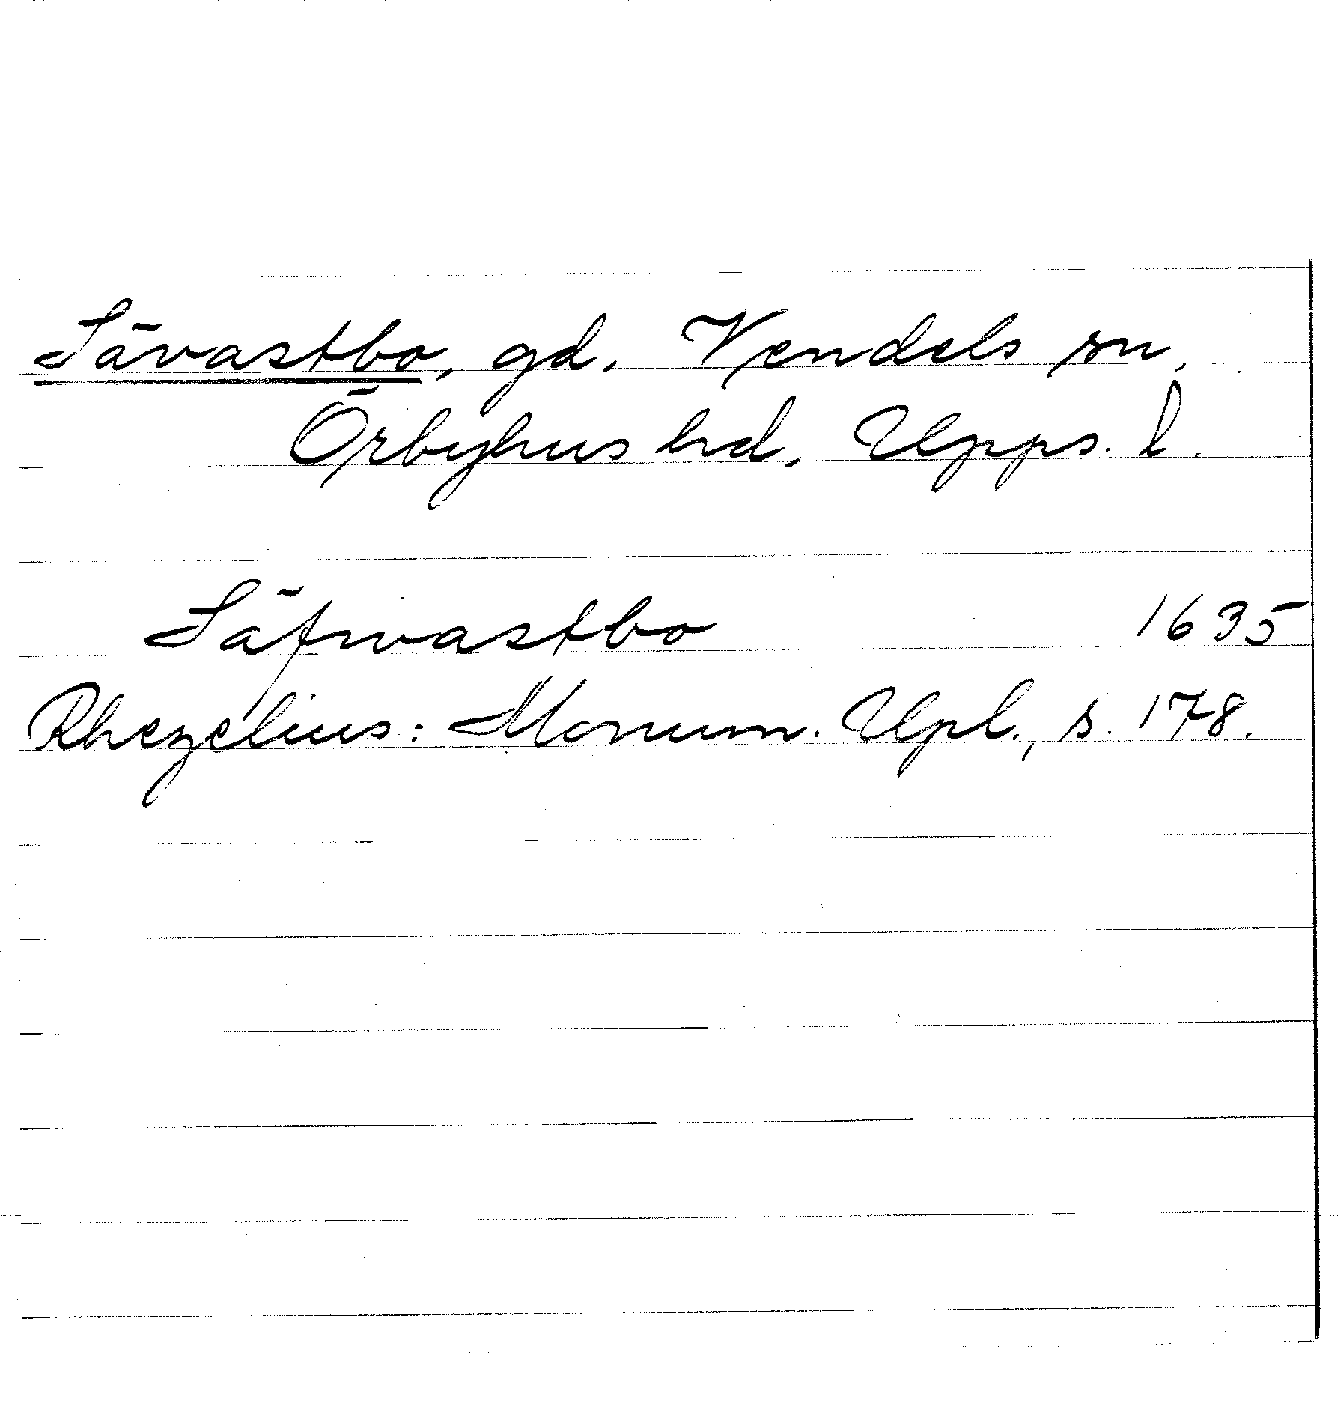 Sävastbo, gd. Vendels sn,
Örbyhus hd. Upps. l.
Säfwastbo 1635
Rhezelius: Monum. Upl., s. 178.